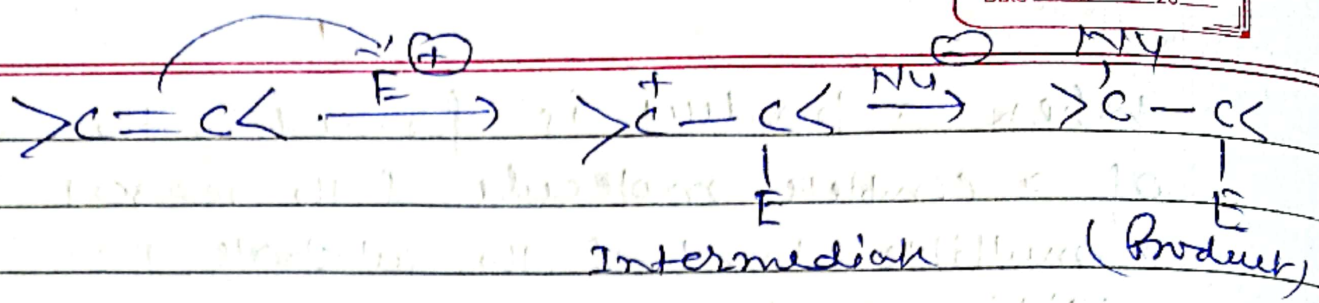 >C=C< —E⊕→ >C⁺—C< —Nu⊖→ >C—C<
Nu
E E
Intermediate (Product)